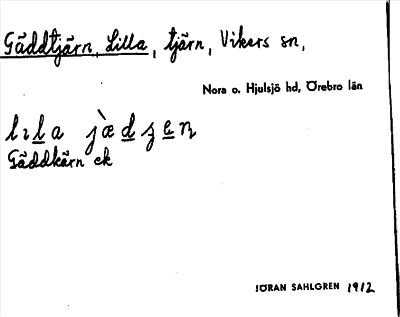 Gäddtjärn, Lilla, tjärn, Vikers sn,
Nora o. Hjulsjö hd, Örebro län
Gäddkärn ek
JÖRAN SAHLGREN 1912